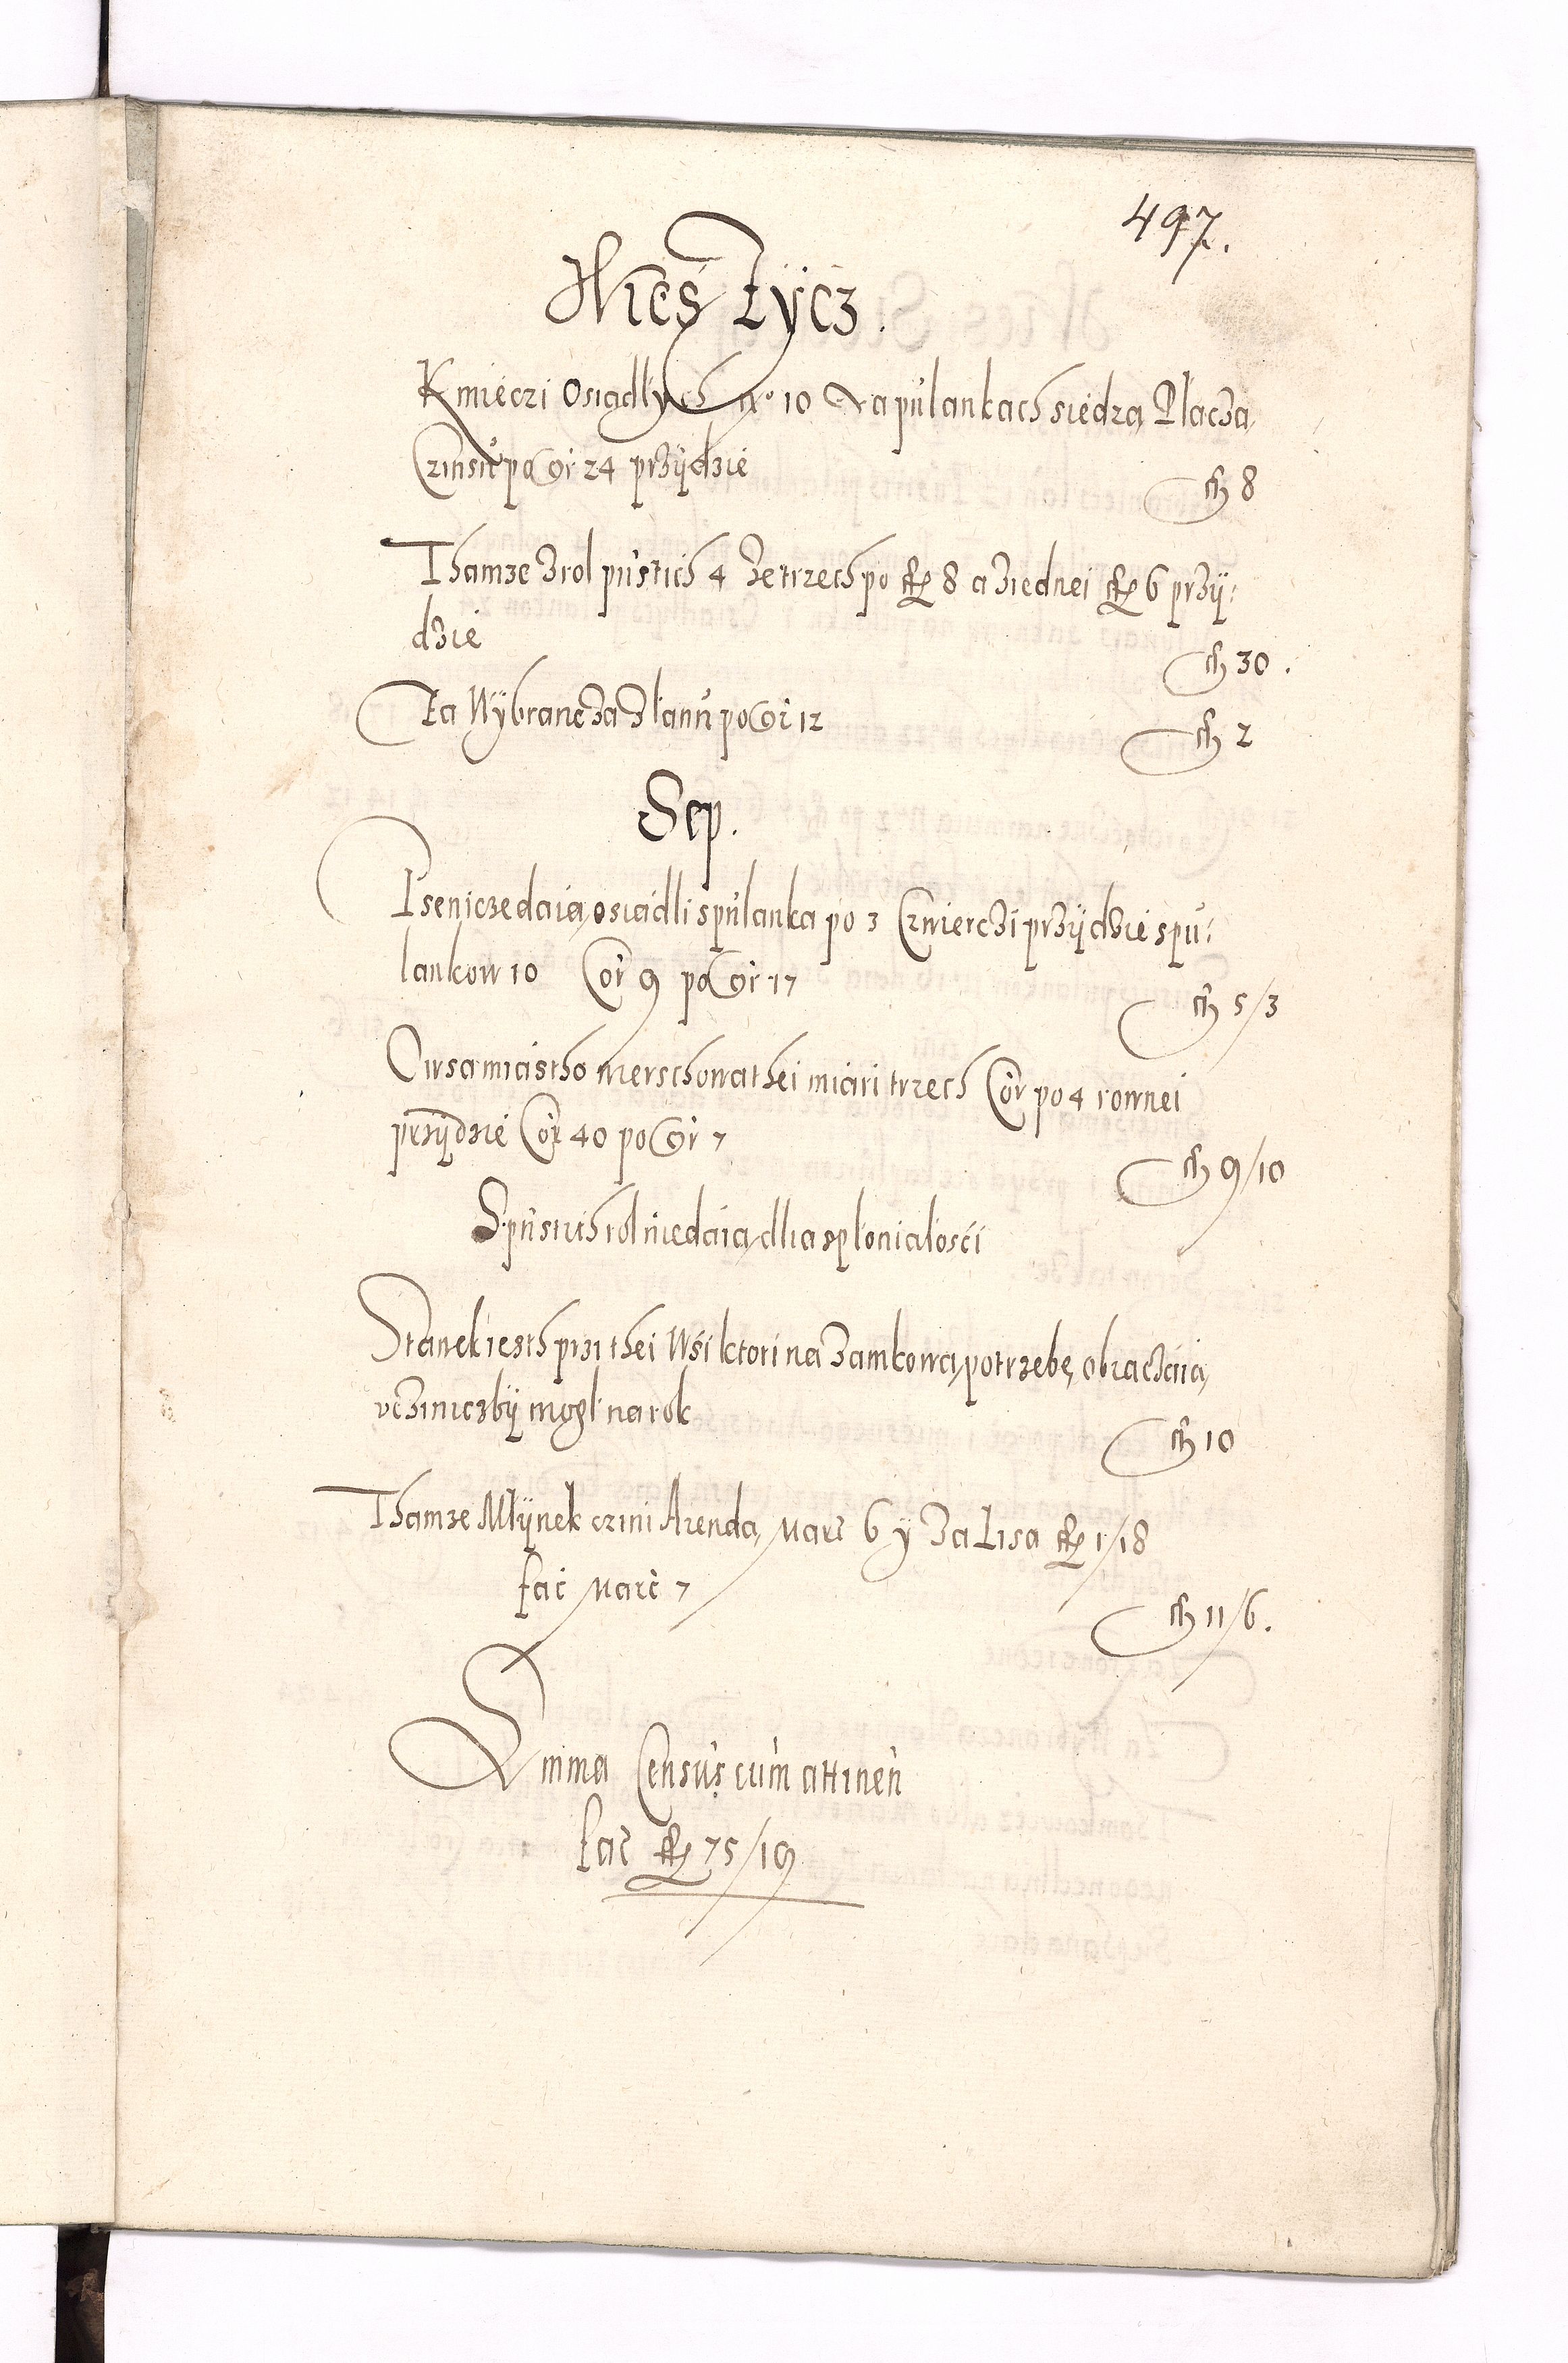 497.
Wieś Życz.
Kmieczi Osiadłych nro 10 Na pułankach siedzą Płaczą
Czinsu po gr 24 przÿdzie
fl 8
Thamze z rol pustich 4 ze trzech po fl 8 a ziednei fl 6 przÿ:
dzie
fl 30.
Za Wÿbrancza z łanu po gr 12
fl 2
Sep.
Psenicze daią osiadli s pułanka po 3 Czwierczi przÿdzie s pu:
łankow 10 Cor 9 po gr 17
fl 5/3
Owsa miastho wierschowathei miari trzech Cor po 4 rownei
przÿdzie Cor 40 po gr 7
fl 9/10
S pustich rol niedaią dlia splonialości
Stawek iesth przi thei Wśi ktori na zamkową potrzebę obraczaią
uczinicz bÿ mogł na rok
fl 10
Thamze Młÿnek czini Arendą Marc 6 ÿ za Lisa fl 1/18
fac Marc 7
fl 11/6.
Summa Census cum attinen
fac fl 75/19